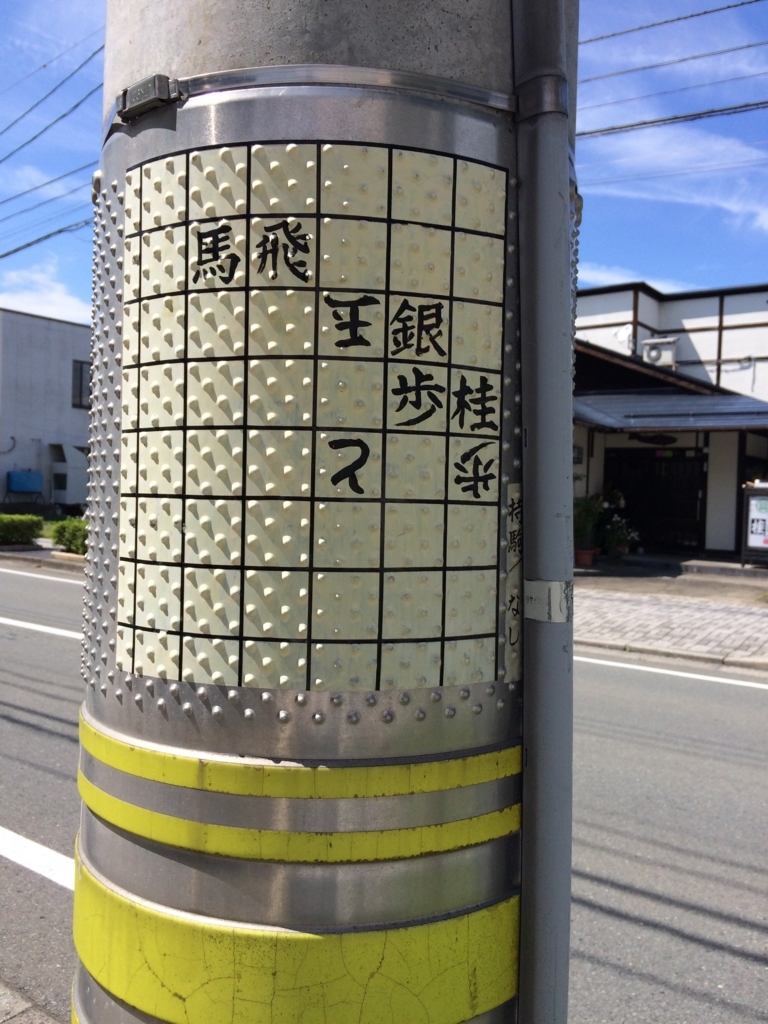 馬 飛
王 銀
歩 桂
と 歩
持駒 なし